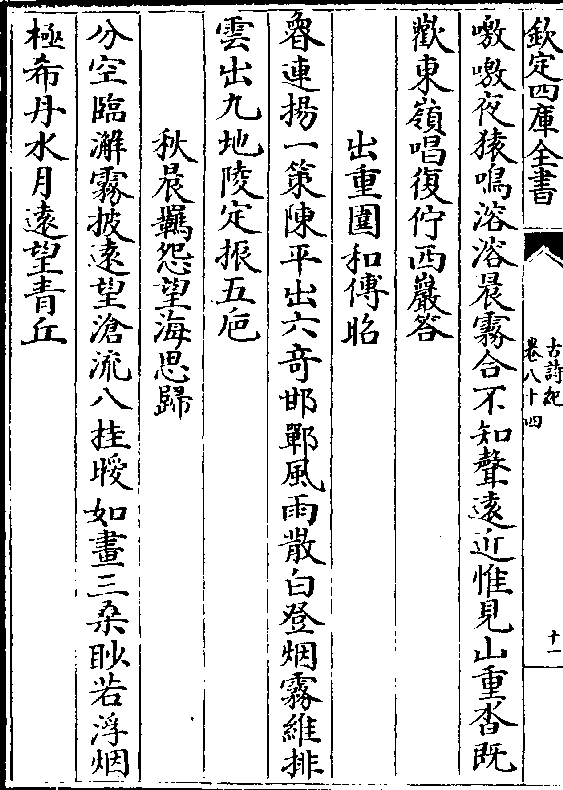 欽定四庫全書
古詩紀
卷八十四
十一
噭噭夜猿鳴溶溶晨霧合不知聲遠近惟見山重沓既
歡東嶺唱復佇西巖答
出重圍和傅昭
魯連揚一策陳平出六奇邯鄲風雨散白登烟霧維排
雲出九地陵定振五巵
秋晨羈怨望海思歸
分空臨澥霧披遠望滄流八挂曖如畫三桑眇若浮烟
極希丹水月遠望青丘